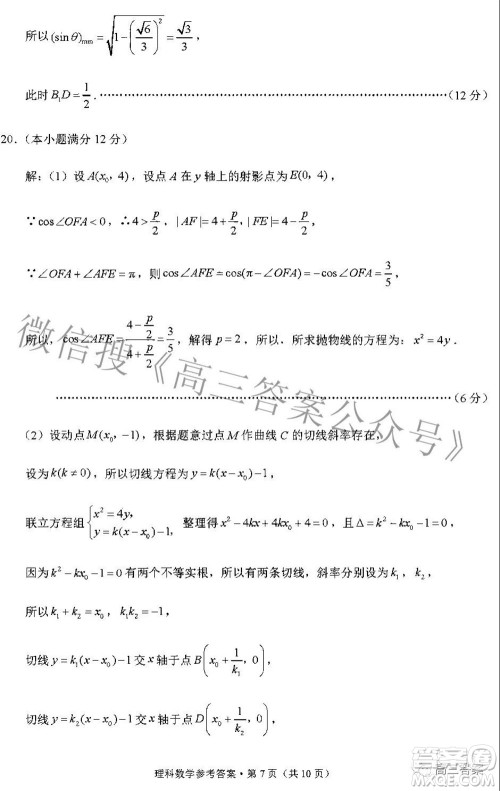 所以 (sin θ)min = √(1 − (√6/3)²) = √3/3，
此时 B₁D = 1/2．……（12 分）
20.（本小题满分 12 分）
解：（1）设 A(x₀, 4)，设点 A 在 y 轴上的射影点为 E(0, 4)，
∵ cos∠OFA < 0，∴ 4 > p/2，|AF| = 4 + p/2，|FE| = 4 − p/2，
∵ ∠OFA + ∠AFE = π，则 cos∠AFE = cos(π − ∠OFA) = −cos∠OFA = 3/5，
所以，cos∠AFE = (4 − p/2)/(4 + p/2) = 3/5，解得 p = 2，所以，所求抛物线的方程为：x² = 4y．
……（6 分）
（2）设动点 M(x₀, −1)，根据题意过点 M 作曲线 C 的切线斜率存在，
设为 k(k ≠ 0)，所以切线方程为 y = k(x − x₀) − 1，
联立方程组 { x² = 4y, y = k(x − x₀) − 1, 整理得 x² − 4kx + 4kx₀ + 4 = 0，且 Δ = k² − kx₀ − 1 = 0，
因为 k² − kx₀ − 1 = 0 有两个不等实根，所以有两条切线，斜率分别设为 k₁，k₂，
所以 k₁ + k₂ = x₀，k₁k₂ = −1，
切线 y = k₁(x − x₀) − 1 交 x 轴于点 B(x₀ + 1/k₁, 0)，
切线 y = k₂(x − x₀) − 1 交 x 轴于点 D(x₀ + 1/k₂, 0)，
理科数学参考答案 · 第 7 页（共 10 页）
微信搜《高三答案公众号》
高三答案